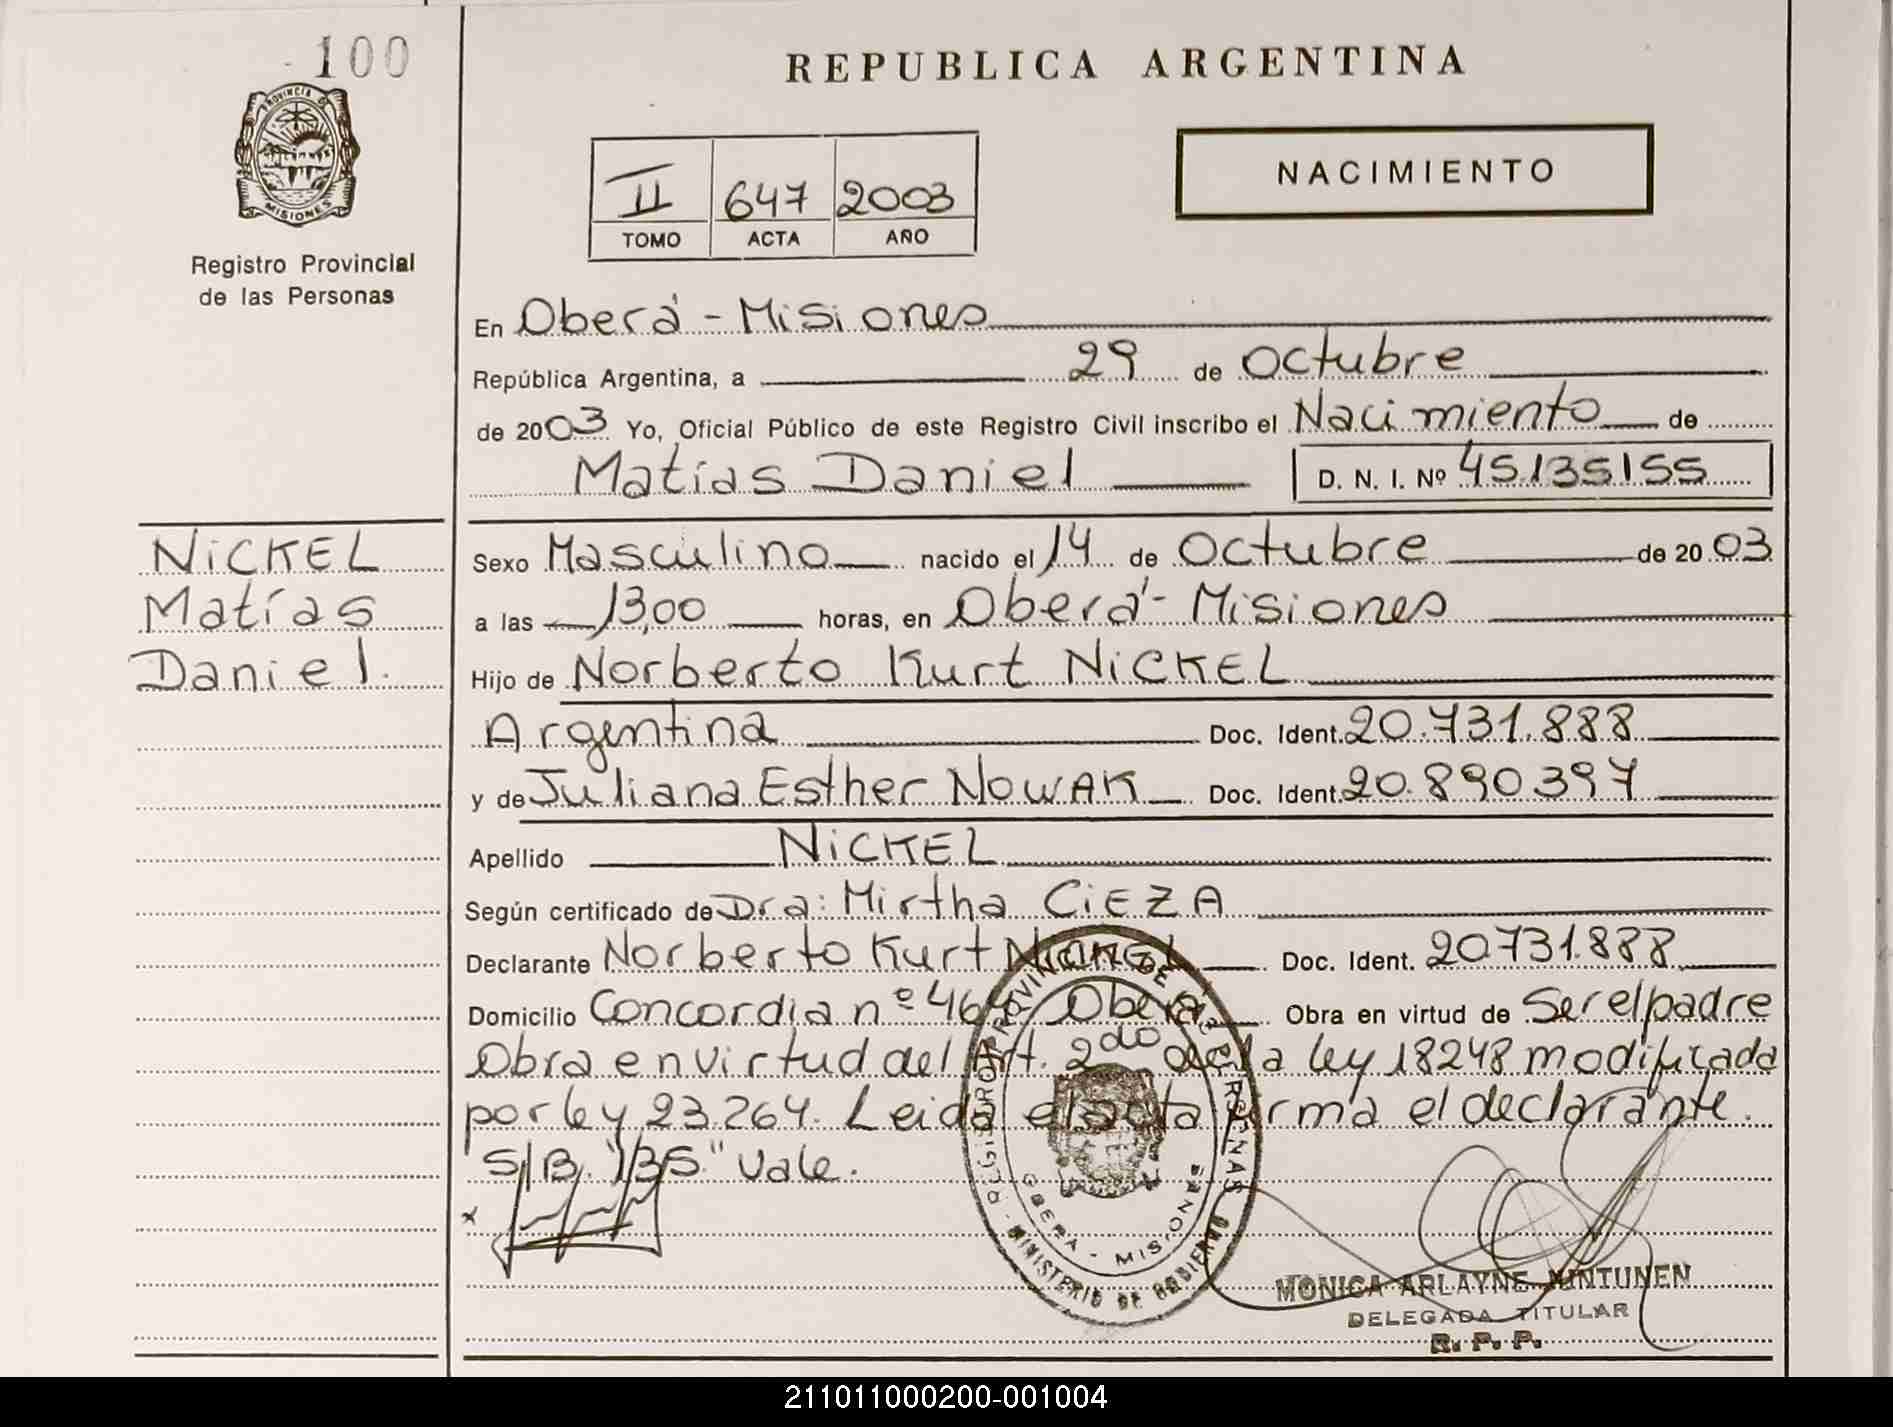 100
PROVINCIA DE
MISIONES
Registro Provincial
de las Personas
REPUBLICA ARGENTINA
II 647 2003
TOMO ACTA AÑO
NACIMIENTO
En Oberá - Misiones
República Argentina, a 29 de Octubre
de 2003 Yo, Oficial Público de este Registro Civil inscribo el Nacimiento de
Matías Daniel D. N. I. Nº 45.135155
NiCKEL
Matías
Daniel.
Sexo Masculino nacido el 14 de Octubre de 2003
a las 13,00 horas, en Oberá - Misiones
Hijo de Norberto Kurt NiCKEL
Argentina Doc. Ident. 20.731.888
y de Juliana Esther NOWAK Doc. Ident. 20.890.397
Apellido NiCKEL
Según certificado de Dra: Mirtha CiEZA
Declarante Norberto Kurt NiCKEL Doc. Ident. 20731.888
Domicilio Concordia nº 464 Oberá Obra en virtud de Ser el padre
Obra en virtud del Art. 2do de la ley 18248 modificada
por ley 23.264. Leida el acta firma el declarante.
S/B. "135." Vale.
x
REGISTRO PROVINCIAL DE LAS PERSONAS
OBERA - MISIONES
MINISTERIO DE GOBIERNO
MONICA ARLAYNE KINTUNEN
DELEGADA TITULAR
R. P. P.
211011000200-001004